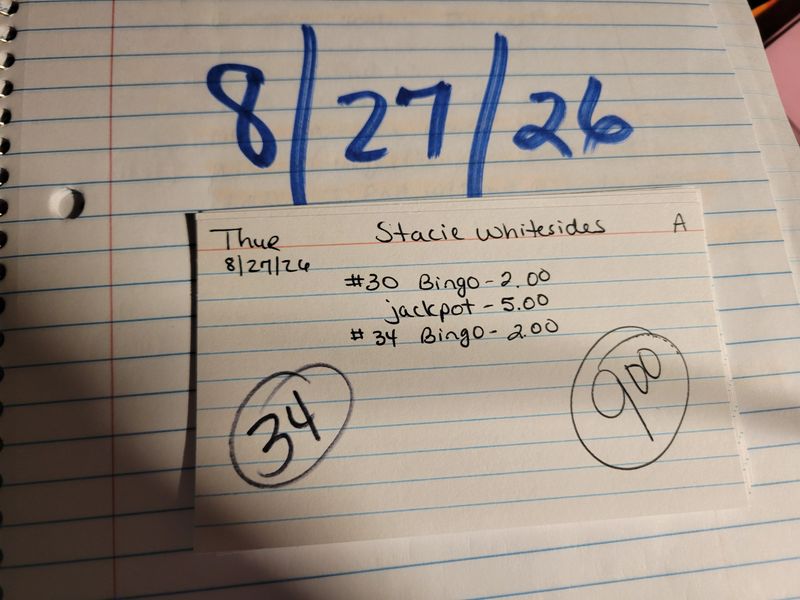 8/27/26
Thur
8/27/26
Stacie Whitesides
A
#30 Bingo - 2.00
jackpot - 5.00
#34 Bingo - 2.00
34
900